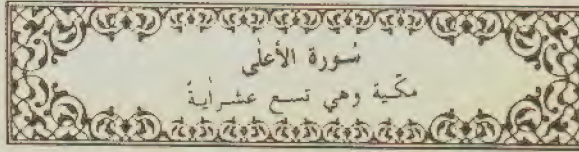 سُورة الأعلٰى
مكّية وهي تسع عشراٰيةً